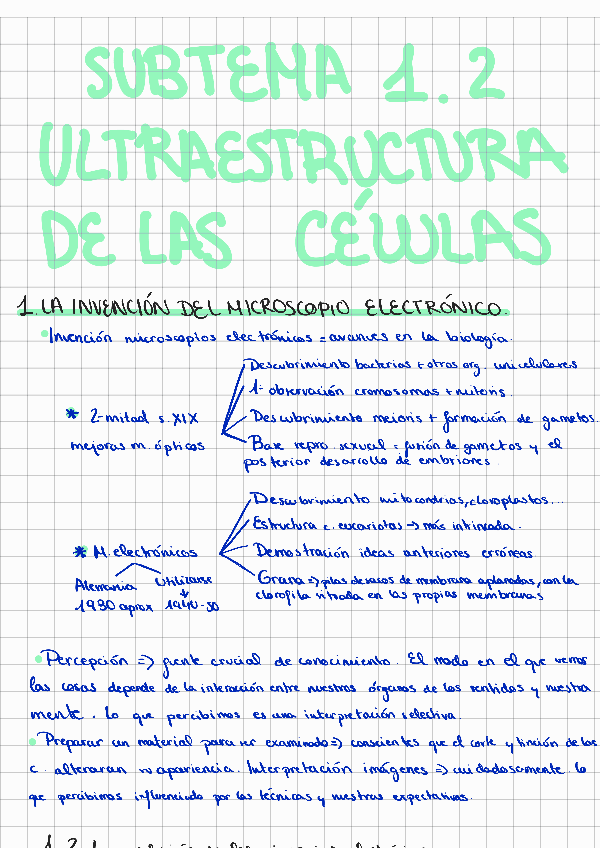 SUBTEMA 1.2
ULTRAESTRUCTURA
DE LAS CÉLULAS
1. LA INVENCIÓN DEL MICROSCOPIO ELECTRÓNICO.
Invención microscopios electrónicos = avances en la biología.
Descubrimiento bacterias + otros org. unicelulares
1ª observación cromosomas + mitosis.
* 2ª mitad s. XIX
Descubrimiento meiosis + formación de gametos.
mejoras m. ópticos
Base repro. sexual = fusión de gametos y el
posterior desarrollo de embriones
Descubrimiento mitocondrias, cloroplastos...
Estructura c. eucariotas → más intrincada.
* M. electrónicos
Demostración ideas anteriores erróneas
Alemania
Utilizarse
Grana => pilas de sacos de membrana aplanadas, con la
1930 aprox
1940-50
clorofila situada en las propias membranas
Percepción => fuente crucial de conocimiento. El modo en el que vemos
las cosas depende de la interacción entre nuestros órganos de los sentidos y nuestra
mente. Lo que percibimos es una interpretación selectiva.
Preparar un material para ser examinado => conscientes que el corte y tinción de las
c. alteraran su apariencia. Interpretación imágenes => cuidadosamente. lo
que percibimos influenciado por las técnicas y nuestras expectativas.